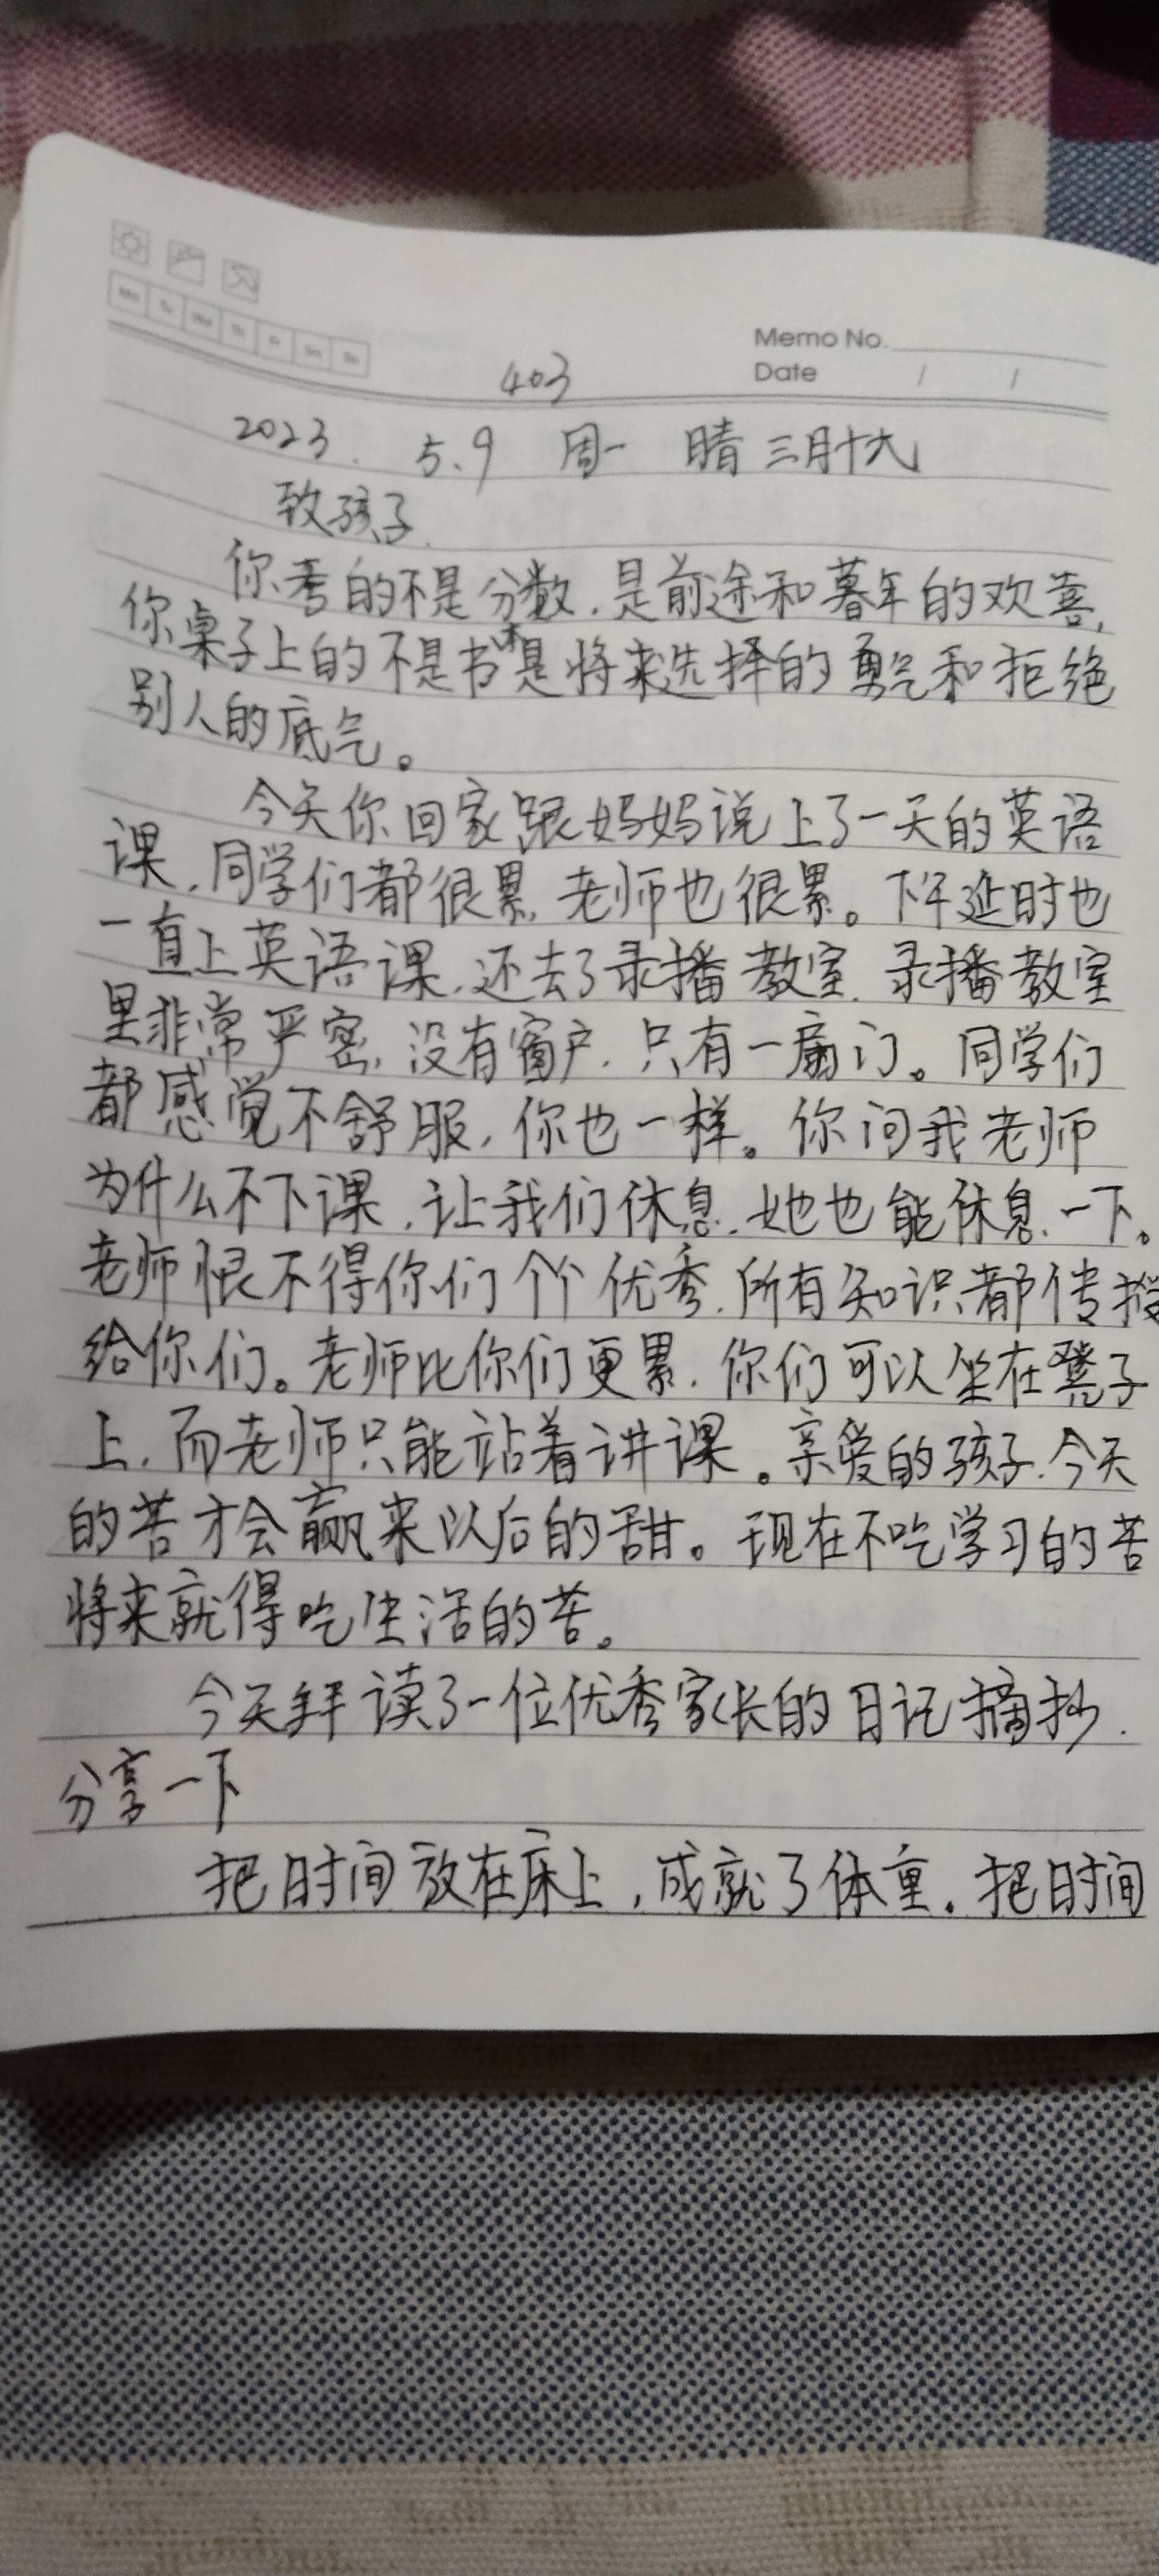 Mo Tu We Th Fr Sa Su
Memo No.
Date / /
403
2023. 5.9 周一 晴 三月十九
致孩子.
你考的不是分数,是前途和暮年的欢喜,
你桌子上的不是书本是将来选择的勇气和拒绝
别人的底气。
今天你回家跟妈妈说上了一天的英语
课,同学们都很累,老师也很累。下午延时也
一直上英语课,还去了录播教室.录播教室
里非常严密,没有窗户.只有一扇门。同学们
都感觉不舒服,你也一样。你问我老师
为什么不下课,让我们休息,她也能休息一下。
老师恨不得你们个个优秀.所有知识都传授
给你们。老师比你们更累.你们可以坐在凳子
上.而老师只能站着讲课。亲爱的孩子.今天
的苦才会赢来以后的甜。现在不吃学习的苦
将来就得吃生活的苦。
今天拜读了一位优秀家长的日记摘抄.
分享一下
把时间放在床上,成就了体重。把时间